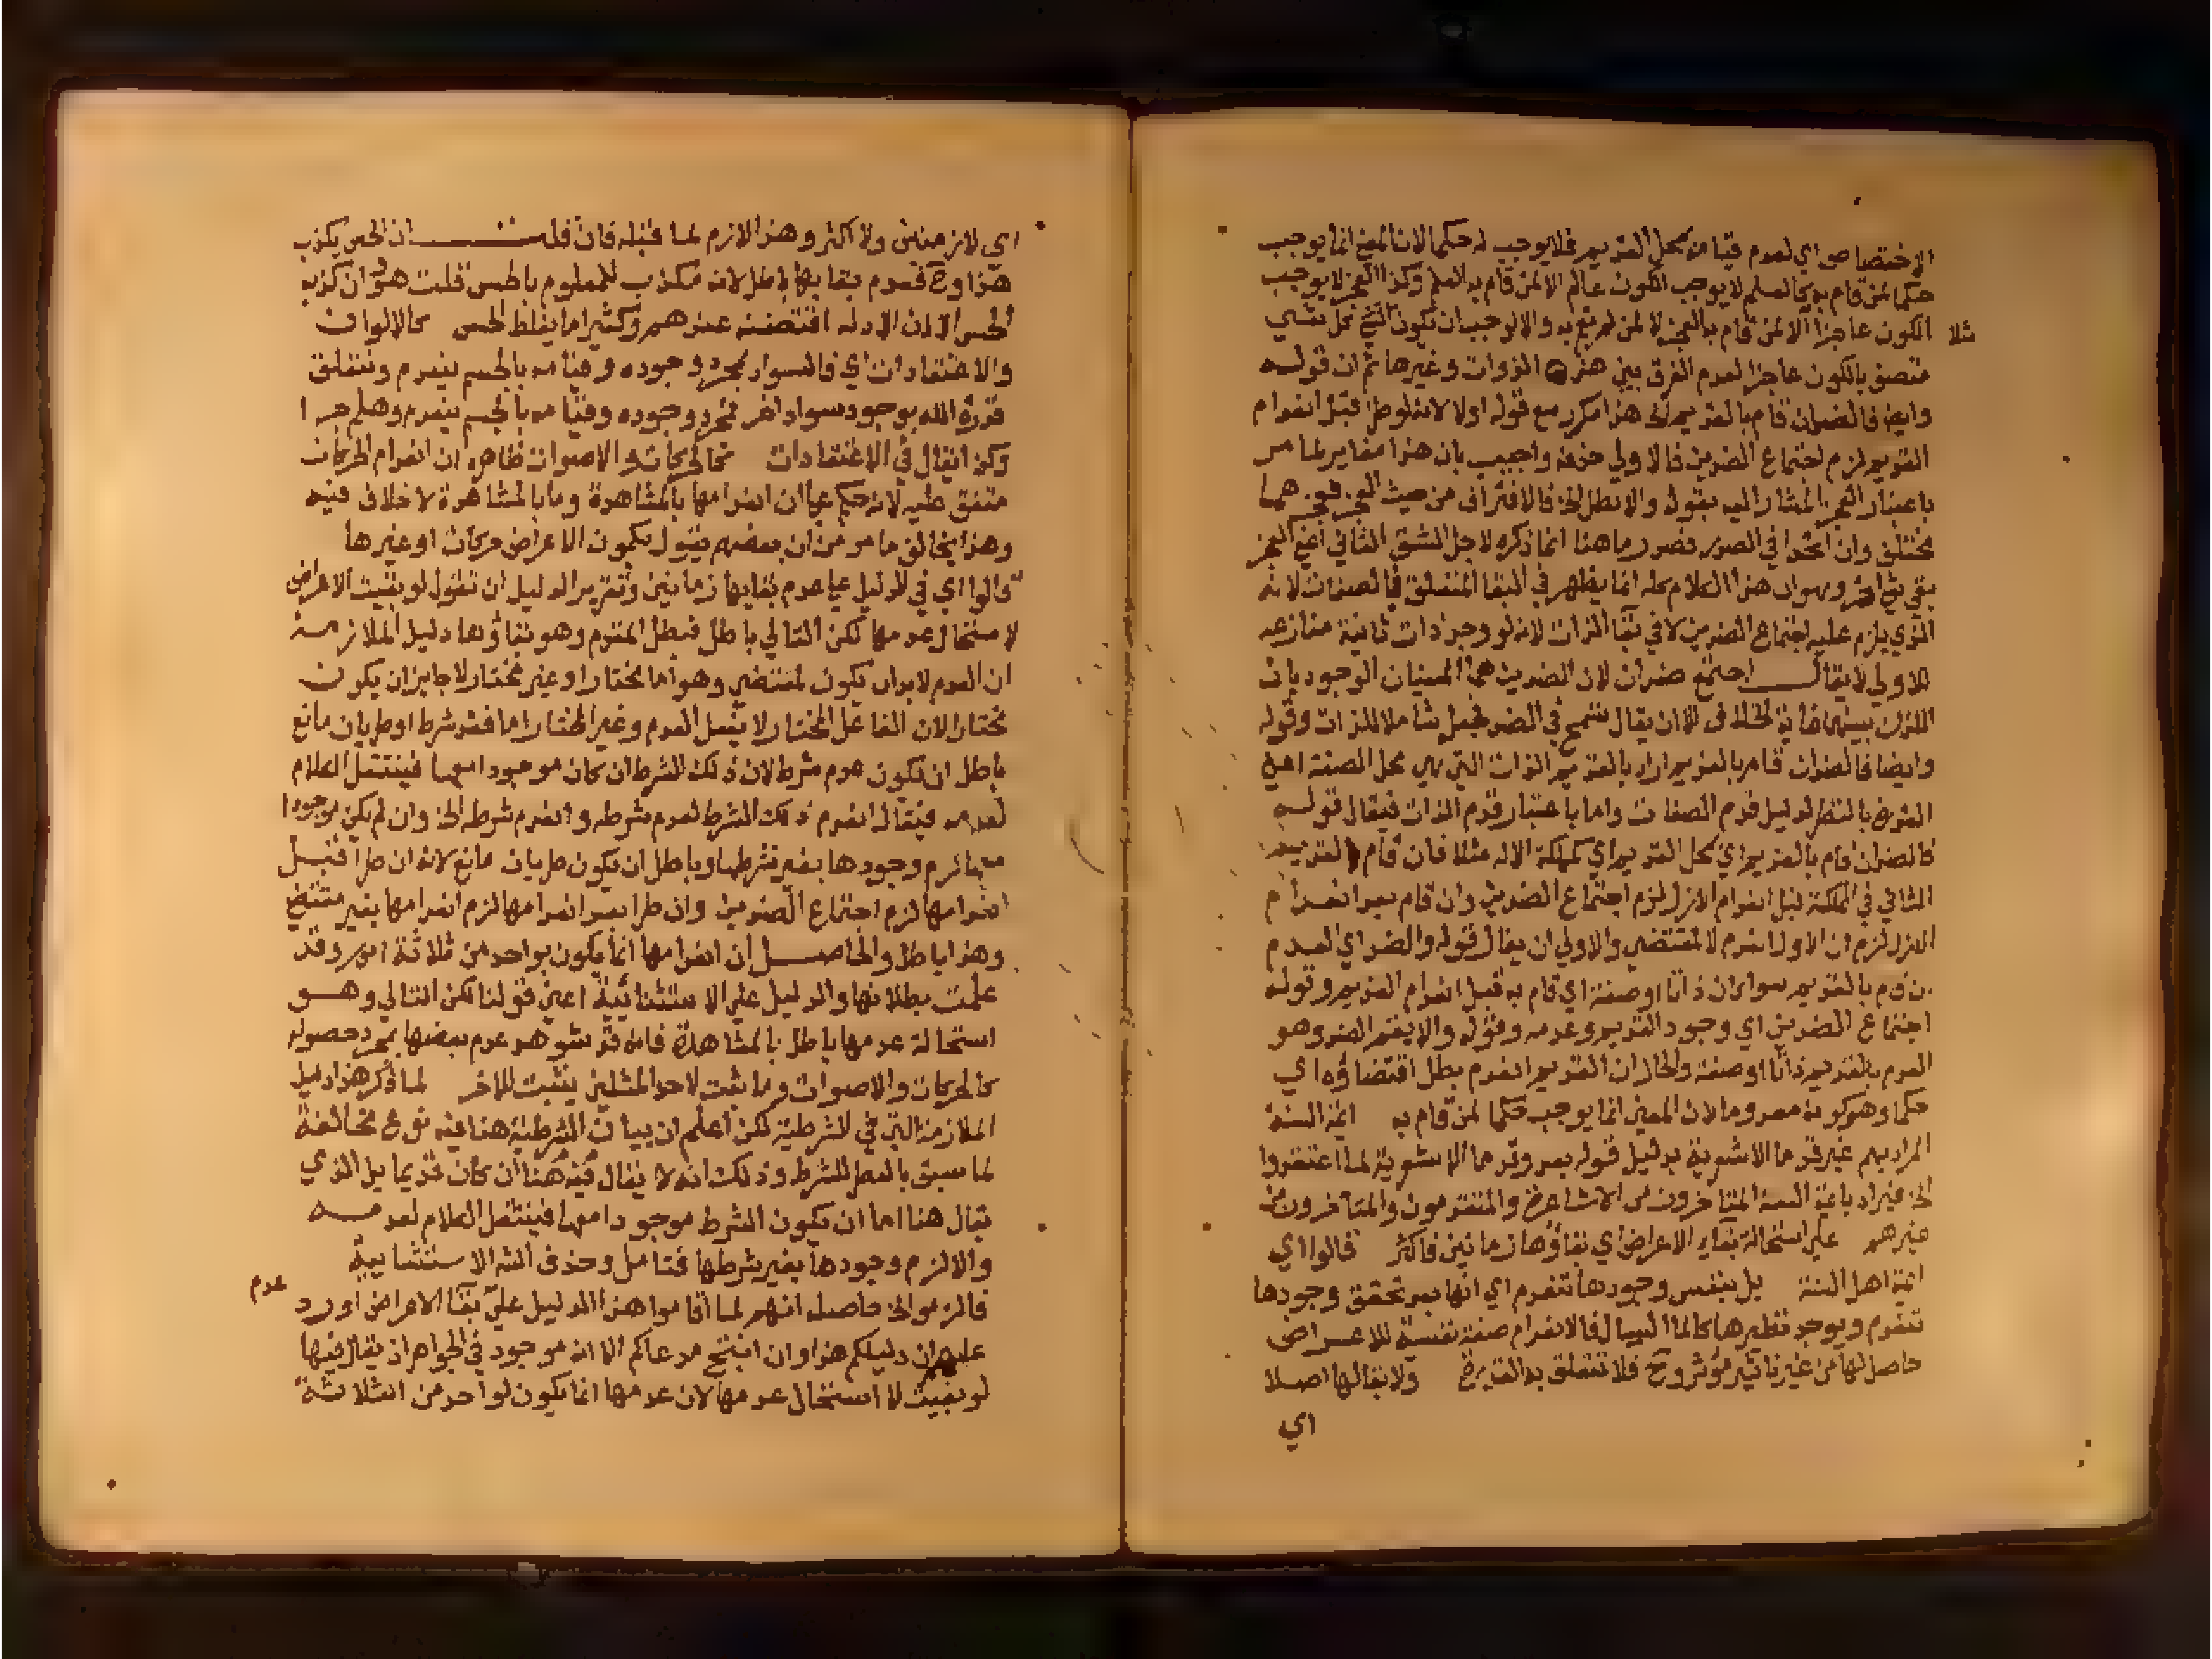 الاختصاص اي لعدم قيامه بمحل القديم فلا يوجب له حكما لان المعنى انما يوجب
حكما لمن قام به كالعلم لا يوجب الكون عالم الا لمن قام به العلم وكذا العجز لا يوجب
الكون عاجزا الا لمن قام به العجز لا لمن لم يقم به والا لوجب ان تكون
مثلا
متصف بالكون عاجزا لعدم الفرق بين هذه الذوات وغيرها ثم ان قوله
وايضا فالضدان قام بالقديم الخ هذا مكرر مع قوله اولا لانه لو طرا قبل انعدام
القديم لزم اجتماع الضدين فالاولي حذفه واجيب بان هذا مغاير لما مر
باعتبار العجز المشار اليه بقوله والا بطل الخ فالافتراق من حيث العجز
مختلف وان اتحدا في الصور ما هنا انما ذكره لاجل الشق الثاني اعني العجز
بقي شي اخر وهو ان هذا الكلام كله انما يظهر في البقا المتعلق بالصفات لانه
الذي يلزم عليه اجتماع الضدين لا في بقا الذات لانه لو وجد ذات ثانية منازعه
للاولي لا يقال اجتمع ضدان لان الضدين هما المعنيان الوجوديان
اللذان بينهما غاية الخلاف الا ان يقال تسمح في الضد فجعل شاملا للذات وقوله
وايضا فالضدان قام بالقديم اراد بالقديم الذات التي هي محل الصفة اعني
القدرة بالنظر لدليل قدم الصفات واما باعتبار قدم الذات فيقال قوله
فالضدان قام بالقديم اي بمحل القديم اي كمملكة الاله مثلا فان قام القديم
الثاني في المملكة قبل انعدام الاول لزم اجتماع الضدين وان قام بعد انعدام
الاول لزم ان الاول انعدم لا لمقتضي والاولي ان يقال قوله والضد اي العدم
ان قام بالقديم سوا كان ذاتا او صفة اي قام به قبل انعدام القديم وقوله
اجتماع الضدين اي وجود القديم وعدمه وقوله والا يقم الضد وهو
العدم بالقديم ذاتا او صفة والحال ان القديم انعدم بطل اقتضاؤه اي
حكما وهو كونه معدوما لان المعني انما يوجب حكما لمن قام به ايمة السنة
المراد بهم غير قدما الاشعرية بدليل قوله بعد وقدما الاشعرية لما اعتقدوا
الخ فيراد بايمة السنة المتاخرون من الاشاعرة والمتقدمون والمتاخرون من
غيرهم علي استحالة بقاء الاعراض اي بقاؤها زمانين فاكثر قالوا اي
ايمة اهل السنة بل بنفس وجودها تنعدم اي انها بعد تحقق وجودها
تنعدم ويوجد نظيرها كالماء السيال فالانعدام صفة نفسية للاعراض
حاصل لها من غير تاثير مؤثر وح فلا تتعلق به القدرة ولا بقا لها اصلا
اي
اي لا زمنين ولا اكثر وهذا لازم لما قبله فان قلت ان الحس يكذب
هذا وح فعدم بقايها باطل لانه مكذب للمعلوم بالحس قلت هو وان كذبه
الحس الا ان الادلة اقتضته عندهم وكثيرا ما يغلط الحس كالالوان
والاعتقادات اي فالسواد بمجرد وجوده وقيامه بالجسم ينعدم وتتعلق
قدرة الله بوجود سواد اخر بمجرد وجوده وقيامه بالجسم ينعدم وهلم جرا
وكذا يقال في الاعتقادات كالحركات والاصوات ظاهره ان انعدام الحركات
متفق عليه لانه حكم علي ان انعدامها بالمشاهدة وما بالمشاهدة لا خلاف فيه
وهذا يخالف ما مر من ان بعضهم يقول بكمون الاعراض حركات او غيرها
قالوا اي في الدليل علي عدم بقايها زمانين وتقرير الدليل ان تقول لو بقيت الاعراض
لاستحال عدمها لكن التالي باطل فبطل المقدم وهو بقاؤها دليل الملازمة
ان العدم لا بد ان يكون لمقتضي وهو اما مختار او غير مختار لا جايز ان يكون
مختارا لان الفاعل المختار لا يفعل العدم وغير المختار اما فقد شرط او طريان مانع
باطل ان يكون عدم شرط لان ذلك الشرط ان كان موجودا معها فينتقل الكلام
لعدمه فيقال انعدم ذلك الشرط لعدم شرطه وانعدم شرطه الخ وان لم يكن موجودا
معها لزم وجودها بغير شرطها وباطل ان يكون طريان مانع لانه ان طرا قبل
انعدامها لزم اجتماع الضدين وان طرا بعد انعدامها لزم انعدامها بغير مقتضي
وهذا باطل والحاصل ان انعدامها انما يكون بواحد من ثلاثة امور وقد
علمت بطلانها والدليل علي الاستثنائية اعني قولنا لكن التالي وهو
استحالة عدمها باطل بالمشاهدة فانه قد شوهد عدم بعضها بمجرد حصوله
كالحركات والاصوات وما ثبت لاحد المثلين يثبت للاخر لما ذكر هذا دليل
الملازمة التي في الشرطية لكن اعلم ان بيان الشرطية هنا فيه نوع مخالفة
لما سبق بالنظر للشرط وذلك انه لا يقال فيه هنا ان كان قديما بل الذي
يقال هنا اما ان يكون الشرط موجودا معها فينتقل الكلام لعدمه
والا لزم وجودها بغير شرطها فتامل وحذف الشه الاستثنايية
فالزموا الخ حاصله انهم لما اقاموا هذا الدليل علي بقا الاعراض اورد
عدم
عليهم ان دليلكم هذا وان انتج مدعاكم الا انه موجود في الجواهر اذ يقال فيها
لو بقيت لاستحال عدمها لان عدمها انما يكون لواحد من الثلاثة